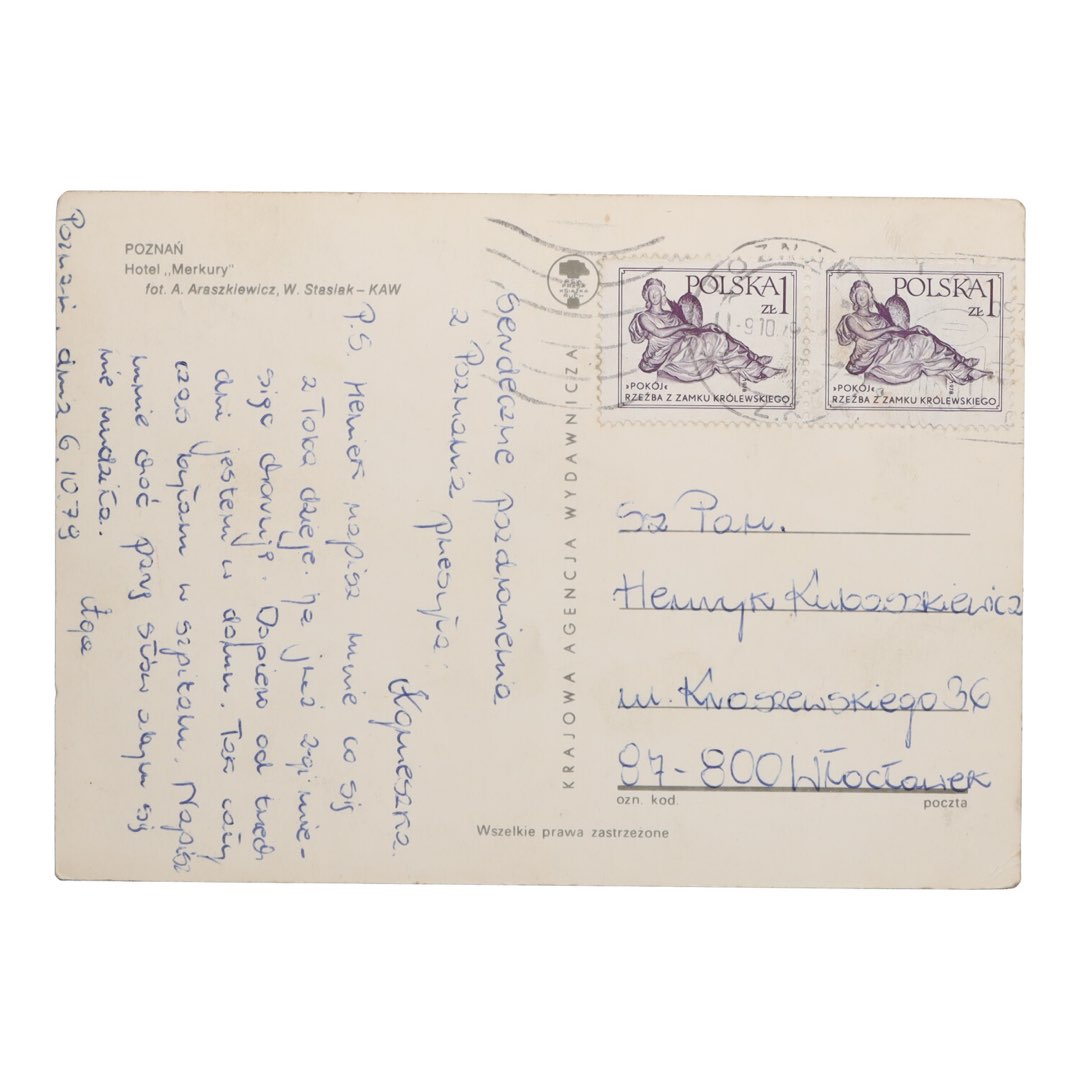 POZNAŃ
Hotel „Merkury”
fot. A. Araszkiewicz, W. Stasiak – KAW
Poznań, dnia 6.10.79
Serdeczne pozdrowienia
z Poznania przesyła
Agnieszka.
P.S. Heniek napisz mnie co się
z Tobą dzieje. Ja już 2gi mie-
siąc choruję. Dopiero od trzech
dni jestem w domu. Tak cały
czas byłam w szpitalu. Napisz
mnie choć parę słów abym się
nie nudziła.
Aga
KRAJOWA AGENCJA WYDAWNICZA
POLSKA 1
ZŁ
›POKÓJ‹
RZEŹBA Z ZAMKU KRÓLEWSKIEGO
POLSKA 1
ZŁ
›POKÓJ‹
RZEŹBA Z ZAMKU KRÓLEWSKIEGO
-9.10.
Sz Pan.
Henryk Kubaszkiewicz
ul. Kraszewskiego 36
87-800 Włocławek
ozn. kod. poczta
Wszelkie prawa zastrzeżone